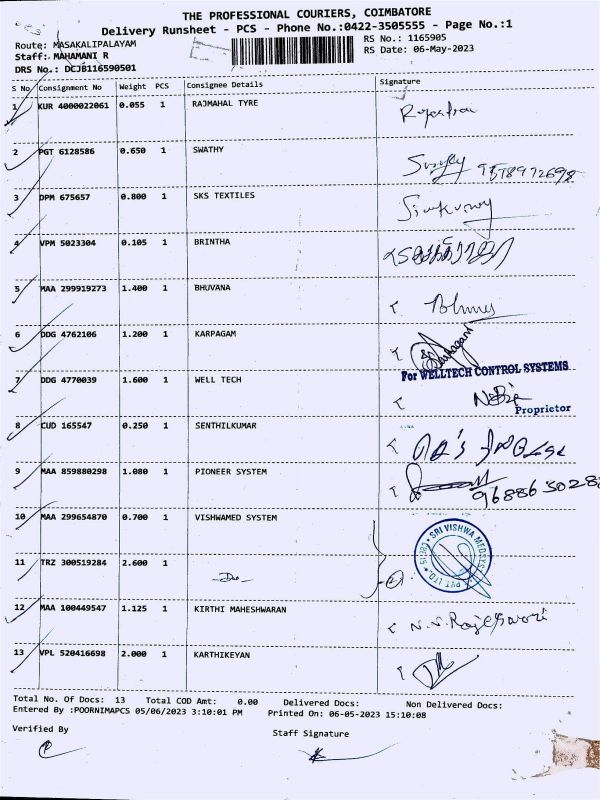 THE PROFESSIONAL COURIERS, COIMBATORE
Delivery Runsheet - PCS - Phone No.:0422-3505555 - Page No.:1
Route: MASAKALIPALAYAM
RS No.: 1165905
Staff: MAHAMANI R
RS Date: 06-May-2023
DRS No.: DCJB116590501
S No Consignment No Weight PCS Consignee Details Signature
1 KUR 4000022061 0.055 1 RAJMAHAL TYRE
2 PGT 6128586 0.650 1 SWATHY
3 DPM 675657 0.800 1 SKS TEXTILES
4 VPM 5023304 0.105 1 BRINTHA
5 MAA 299919273 1.400 1 BHUVANA
6 DDG 4762106 1.200 1 KARPAGAM
For WELLTECH CONTROL SYSTEMS
7 DDG 4770039 1.600 1 WELL TECH
Proprietor
8 CUD 165547 0.250 1 SENTHILKUMAR
9 MAA 859880298 1.080 1 PIONEER SYSTEM
10 MAA 299654870 0.700 1 VISHWAMED SYSTEM
SRI VISHWA MEDSYS
PVT LTD.
11 TRZ 300519284 2.600 1 Do
12 MAA 100449547 1.125 1 KIRTHI MAHESHWARAN N.N.Rajeswari
13 VPL 520416698 2.000 1 KARTHIKEYAN
Total No. Of Docs: 13 Total COD Amt: 0.00 Delivered Docs: Non Delivered Docs:
Entered By :POORNIMAPCS 05/06/2023 3:10:01 PM Printed On: 06-05-2023 15:10:08
Verified By
Staff Signature